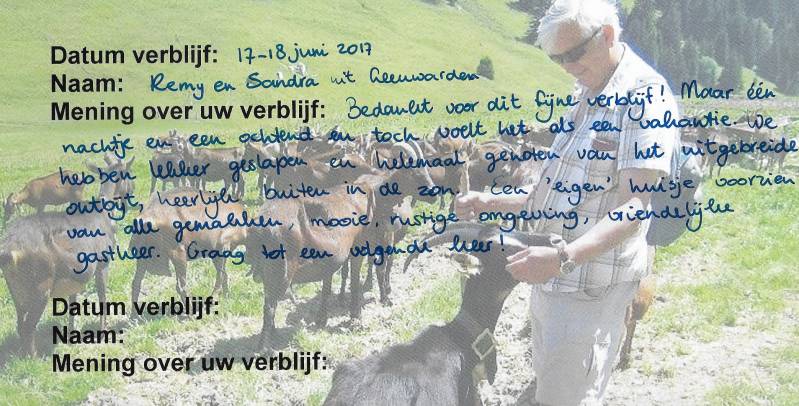 Datum verblijf: 17-18 juni 2017
Naam: Remy en Sandra uit Leeuwarden
Mening over uw verblijf: Bedankt voor dit fijne verblijf! Maar één
nachtje en een ochtend en toch voelt het als een vakantie. We
hebben lekker geslapen en helemaal genoten van het uitgebreide
ontbijt, heerlijk buiten in de zon. Een 'eigen' huisje voorzien
van alle gemakken, mooie, rustige omgeving, vriendelijke
gastheer. Graag tot een volgende keer!
Datum verblijf:
Naam:
Mening over uw verblijf: